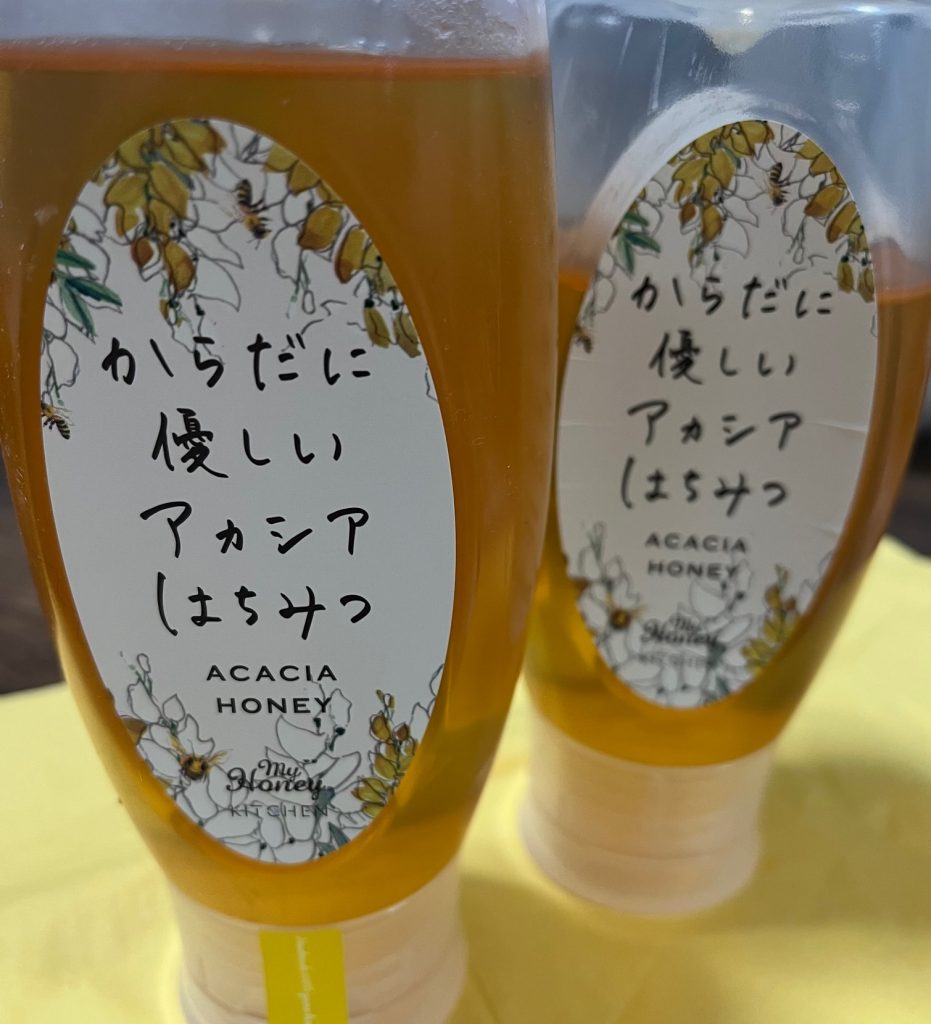 からだに
優しい
アカシア
はちみつ
ACACIA
HONEY
My
Honey
KITCHEN
からだに
優しい
アカシア
はちみつ
ACACIA
HONEY
My
Honey
KITCHEN